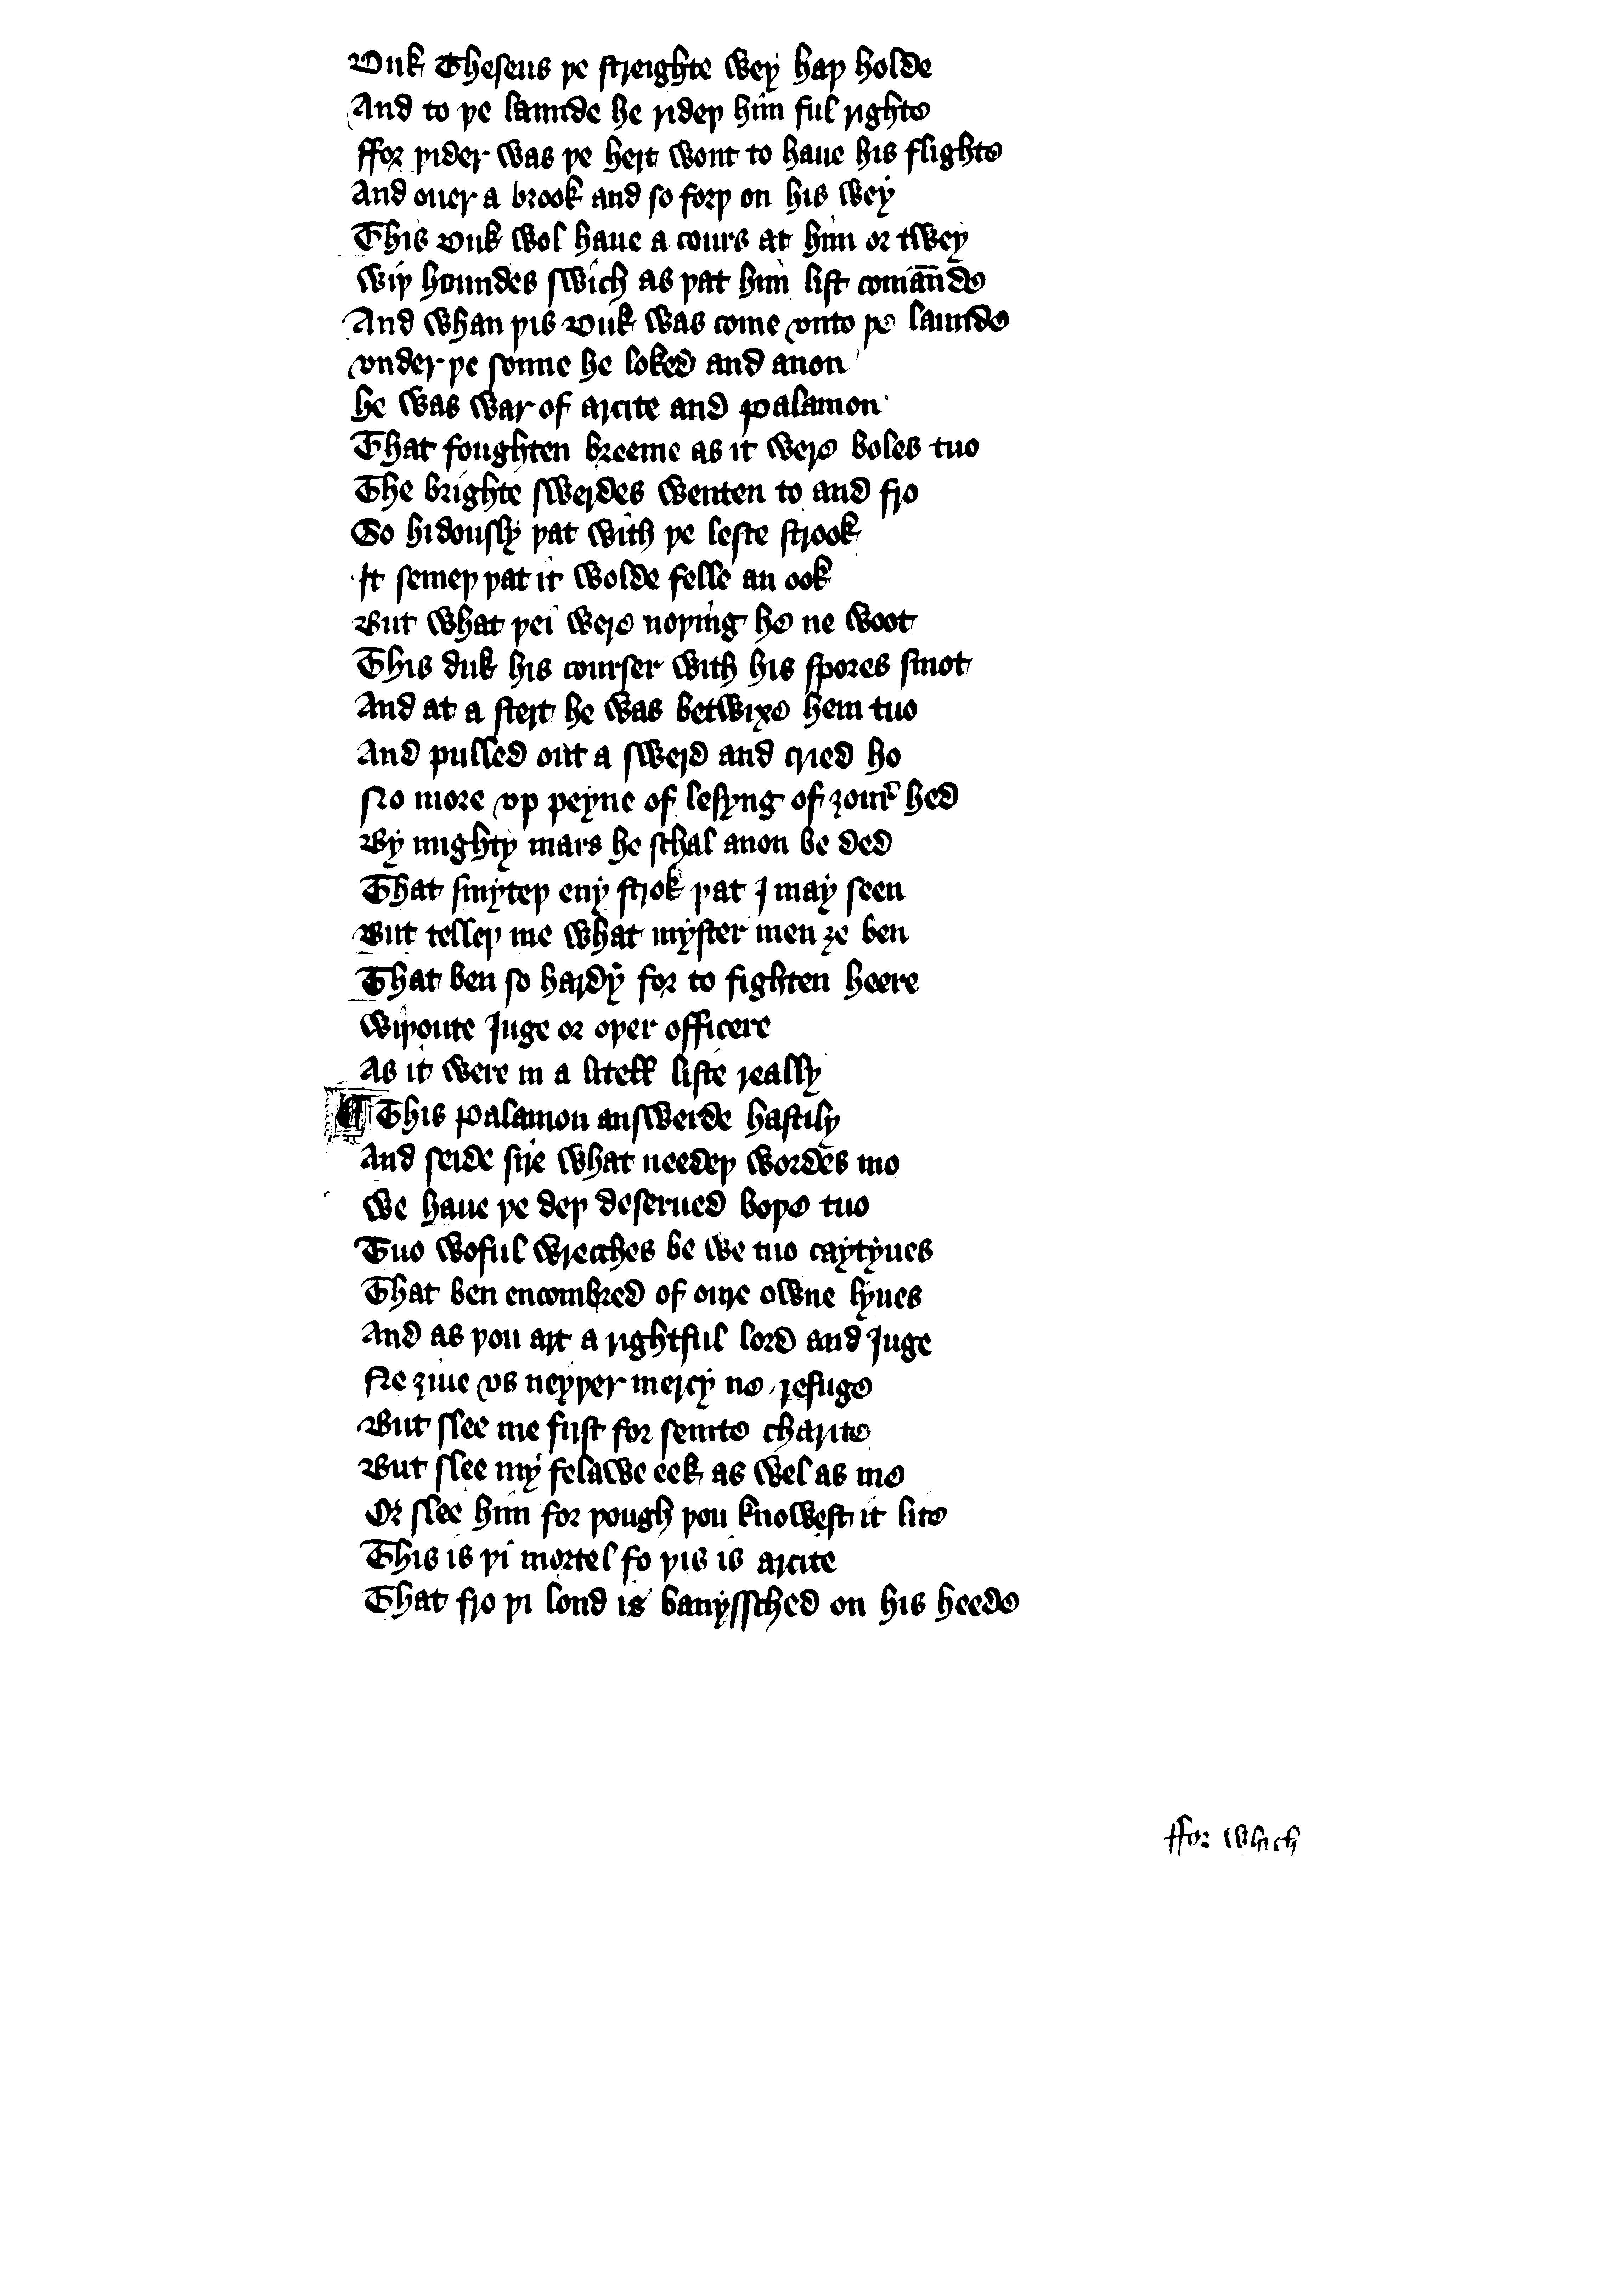 Duk Theseus þe streighte wey haþ holde
And to þe launde he rideþ him ful righte
ffor þider was þe hert wont to haue his flighte
And ouer a brook and so forþ on his wey
This Duk wol haue a cours at him or twey
wiþ houndes swich as þat him list comaūde
And whan þis Duk was come vnto þe launde
vnder þe sonne he loked and anon
he was war of arcite and palamon
That foughten breeme as it were boles tuo
The brighte swerdes wenten to and fro
So hidously þat with þe leste strook
It semeþ þat it wolde felle an ook
But what þei were noþing he ne woot
This duk his courser with his spores smot
And at a stert he was betwixe hem tuo
And pulled out a swerd and cried ho
No more vp peyne of lesyng of ȝour hed
By mighty mars he schal anon be ded
That smyteþ eny strok þat I may seen
But telleþ me what myster men ȝe ben
That ben so hardy for to fighten heere
wiþoute Juge or oþer officere
As it were in a litell liste really
¶ This palamon answerde hastily
And seide sire what needeþ wordes mo
we haue þe deþ deserued boþe tuo
Tuo woful wrecches be we tuo caytyues
That ben encombred of oure owne lyues
And as þou art a rightful lord and Juge
Ne ȝiue vs neyþer mercy ne refuge
But slee me first for seinte charite
But slee my felawe eek as wel as me
Or slee him for þough þou knowest it lite
This is þi mortel fo þis is arcite
That fro þi lond is banyssched on his heede
ffor which